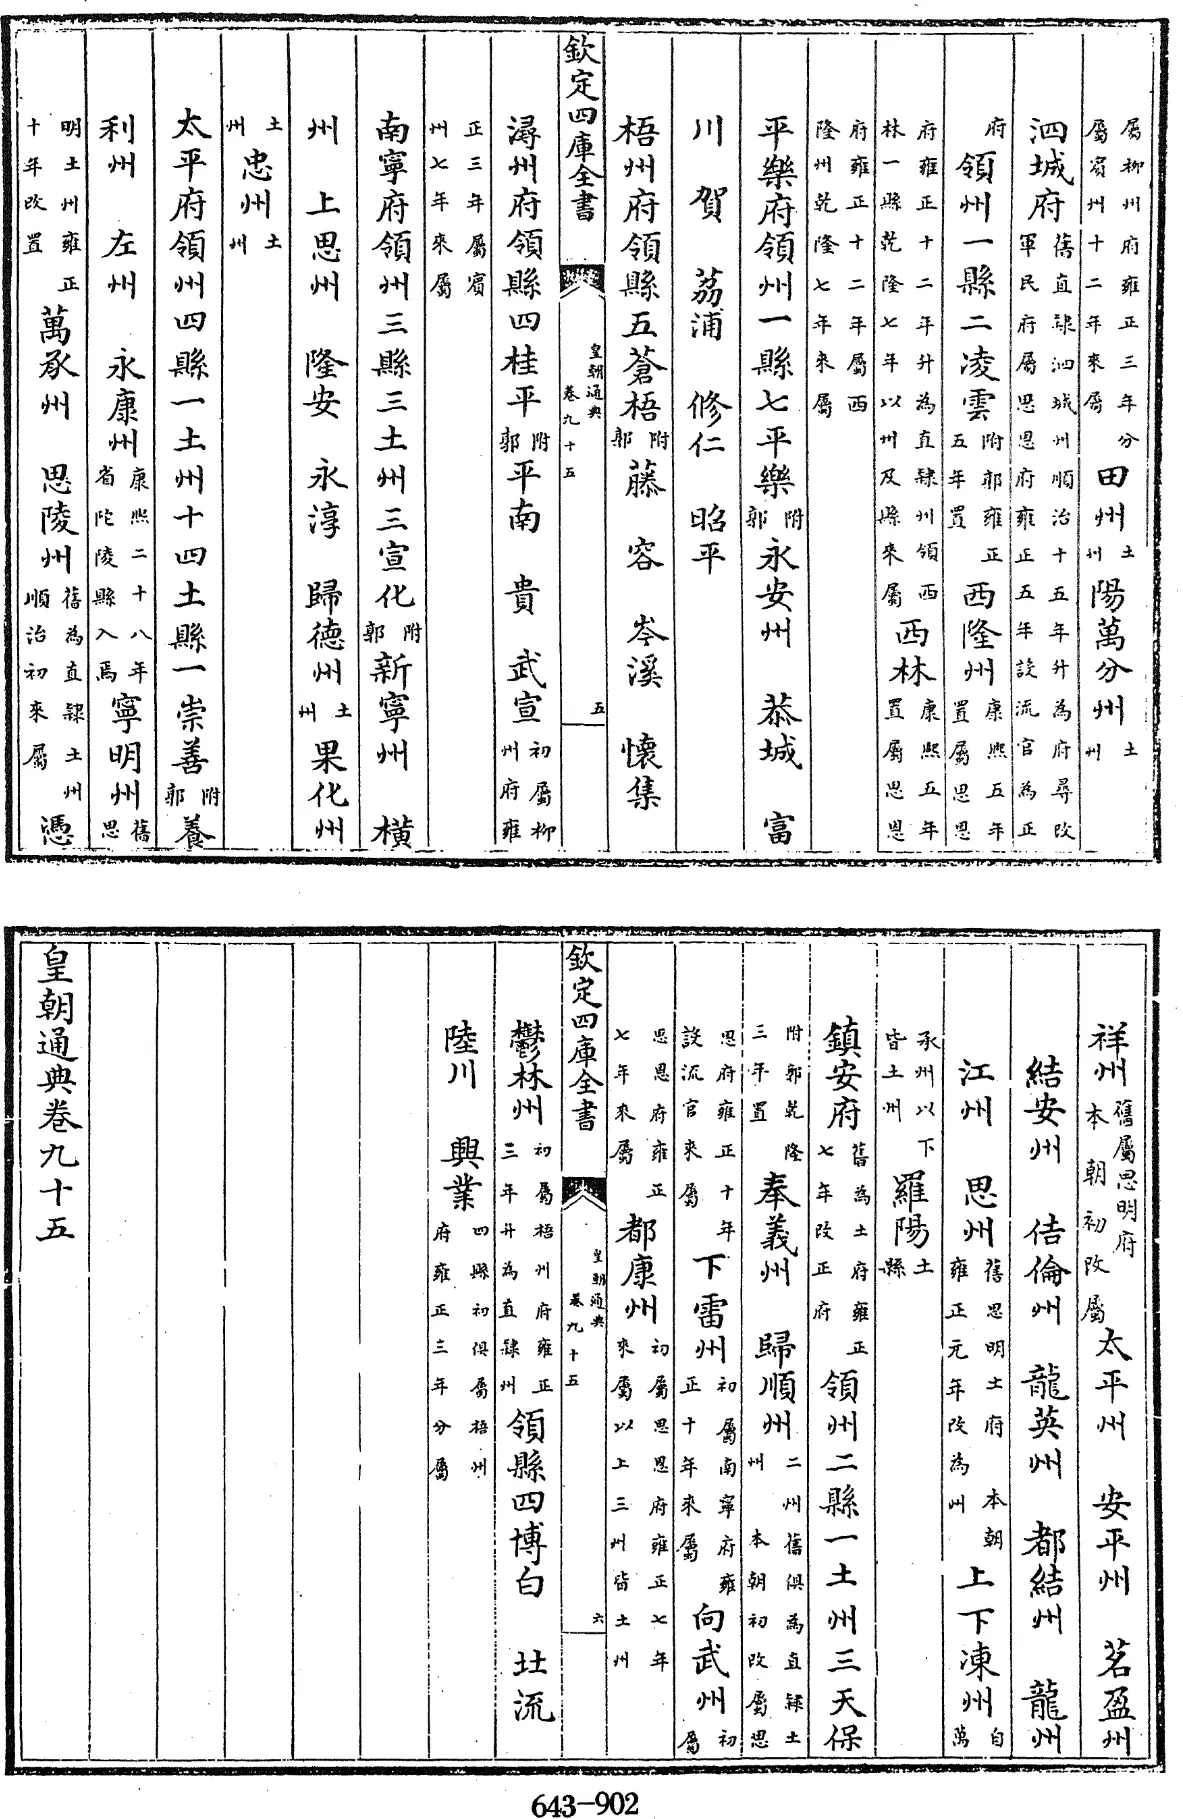 屬柳州府雍正三年分屬賓州十二年來屬 田州土州陽萬分州土州
泗城府舊直隸泗城州順治十五年升為府尋改軍民府屬思恩府雍正五年設流官為正
府領州一縣二凌雲附郭雍正五年置西隆州康熙五年置屬思恩
府雍正十二年升為直隸州領西林一縣乾隆七年以州及縣來屬西林康熙五年置屬思恩
府雍正十二年屬西隆州乾隆七年來屬
平樂府領州一縣七平樂附郭永安州 恭城 富
川 賀 荔浦 修仁 昭平
梧州府領縣五蒼梧附郭藤 容 岑溪 懷集
欽定四庫全書 皇朝通典卷九十五 五
潯州府領縣四桂平附郭平南 貴 武宣初屬柳州府雍
正三年屬賓州七年來屬
南寧府領州三縣三土州三宣化附郭新寧州 橫
州 上思州 隆安 永淳 歸德州土州果化州
土州忠州土州
太平府領州四縣一土州十四土縣一崇善附郭養
利州 左州 永康州康熙二十八年省陀陵縣入焉寧明州舊思
明土州雍正十年改置萬承州 思陵州舊為直隸土州順治初來屬憑
祥州舊屬思明府本朝初改屬太平州 安平州 茗盈州
結安州 佶倫州 龍英州 都結州 龍州
江州 思州舊思明土府本朝雍正元年改為州上下凍州自萬
承州以下皆土州羅陽土縣
鎮安府舊為土府雍正七年改正府領州二縣一土州三天保
附郭乾隆三年置奉義州 歸順州二州舊俱為直隸土州本朝初改屬思
恩府雍正十年設流官來屬下雷州初屬南寧府雍正十年來屬向武州初屬
思恩府雍正七年來屬都康州初屬思恩府雍正七年來屬以上三州皆土州
欽定四庫全書 皇朝通典卷九十五 六
鬱林州初屬梧州府雍正三年升為直隸州領縣四博白 北流
陸川 興業四縣初俱屬梧州府雍正三年分屬
皇朝通典卷九十五
643-902